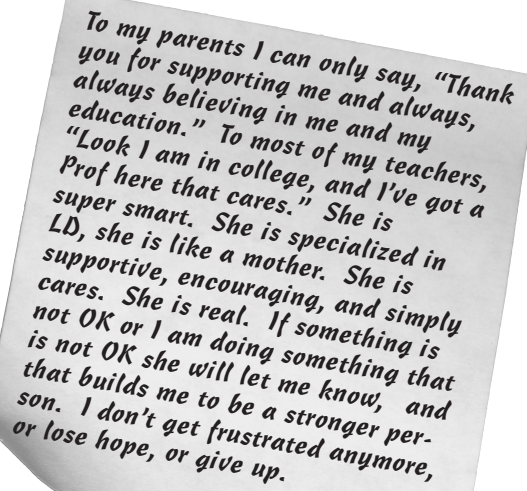 To my parents I can only say, “Thank
you for supporting me and always,
always believing in me and my
education.” To most of my teachers,
“Look I am in college, and I’ve got a
Prof here that cares.” She is
super smart. She is specialized in
LD, she is like a mother. She is
supportive, encouraging, and simply
cares. She is real. If something is
not OK or I am doing something that
is not OK she will let me know, and
that builds me to be a stronger per-
son. I don’t get frustrated anymore,
or lose hope, or give up.